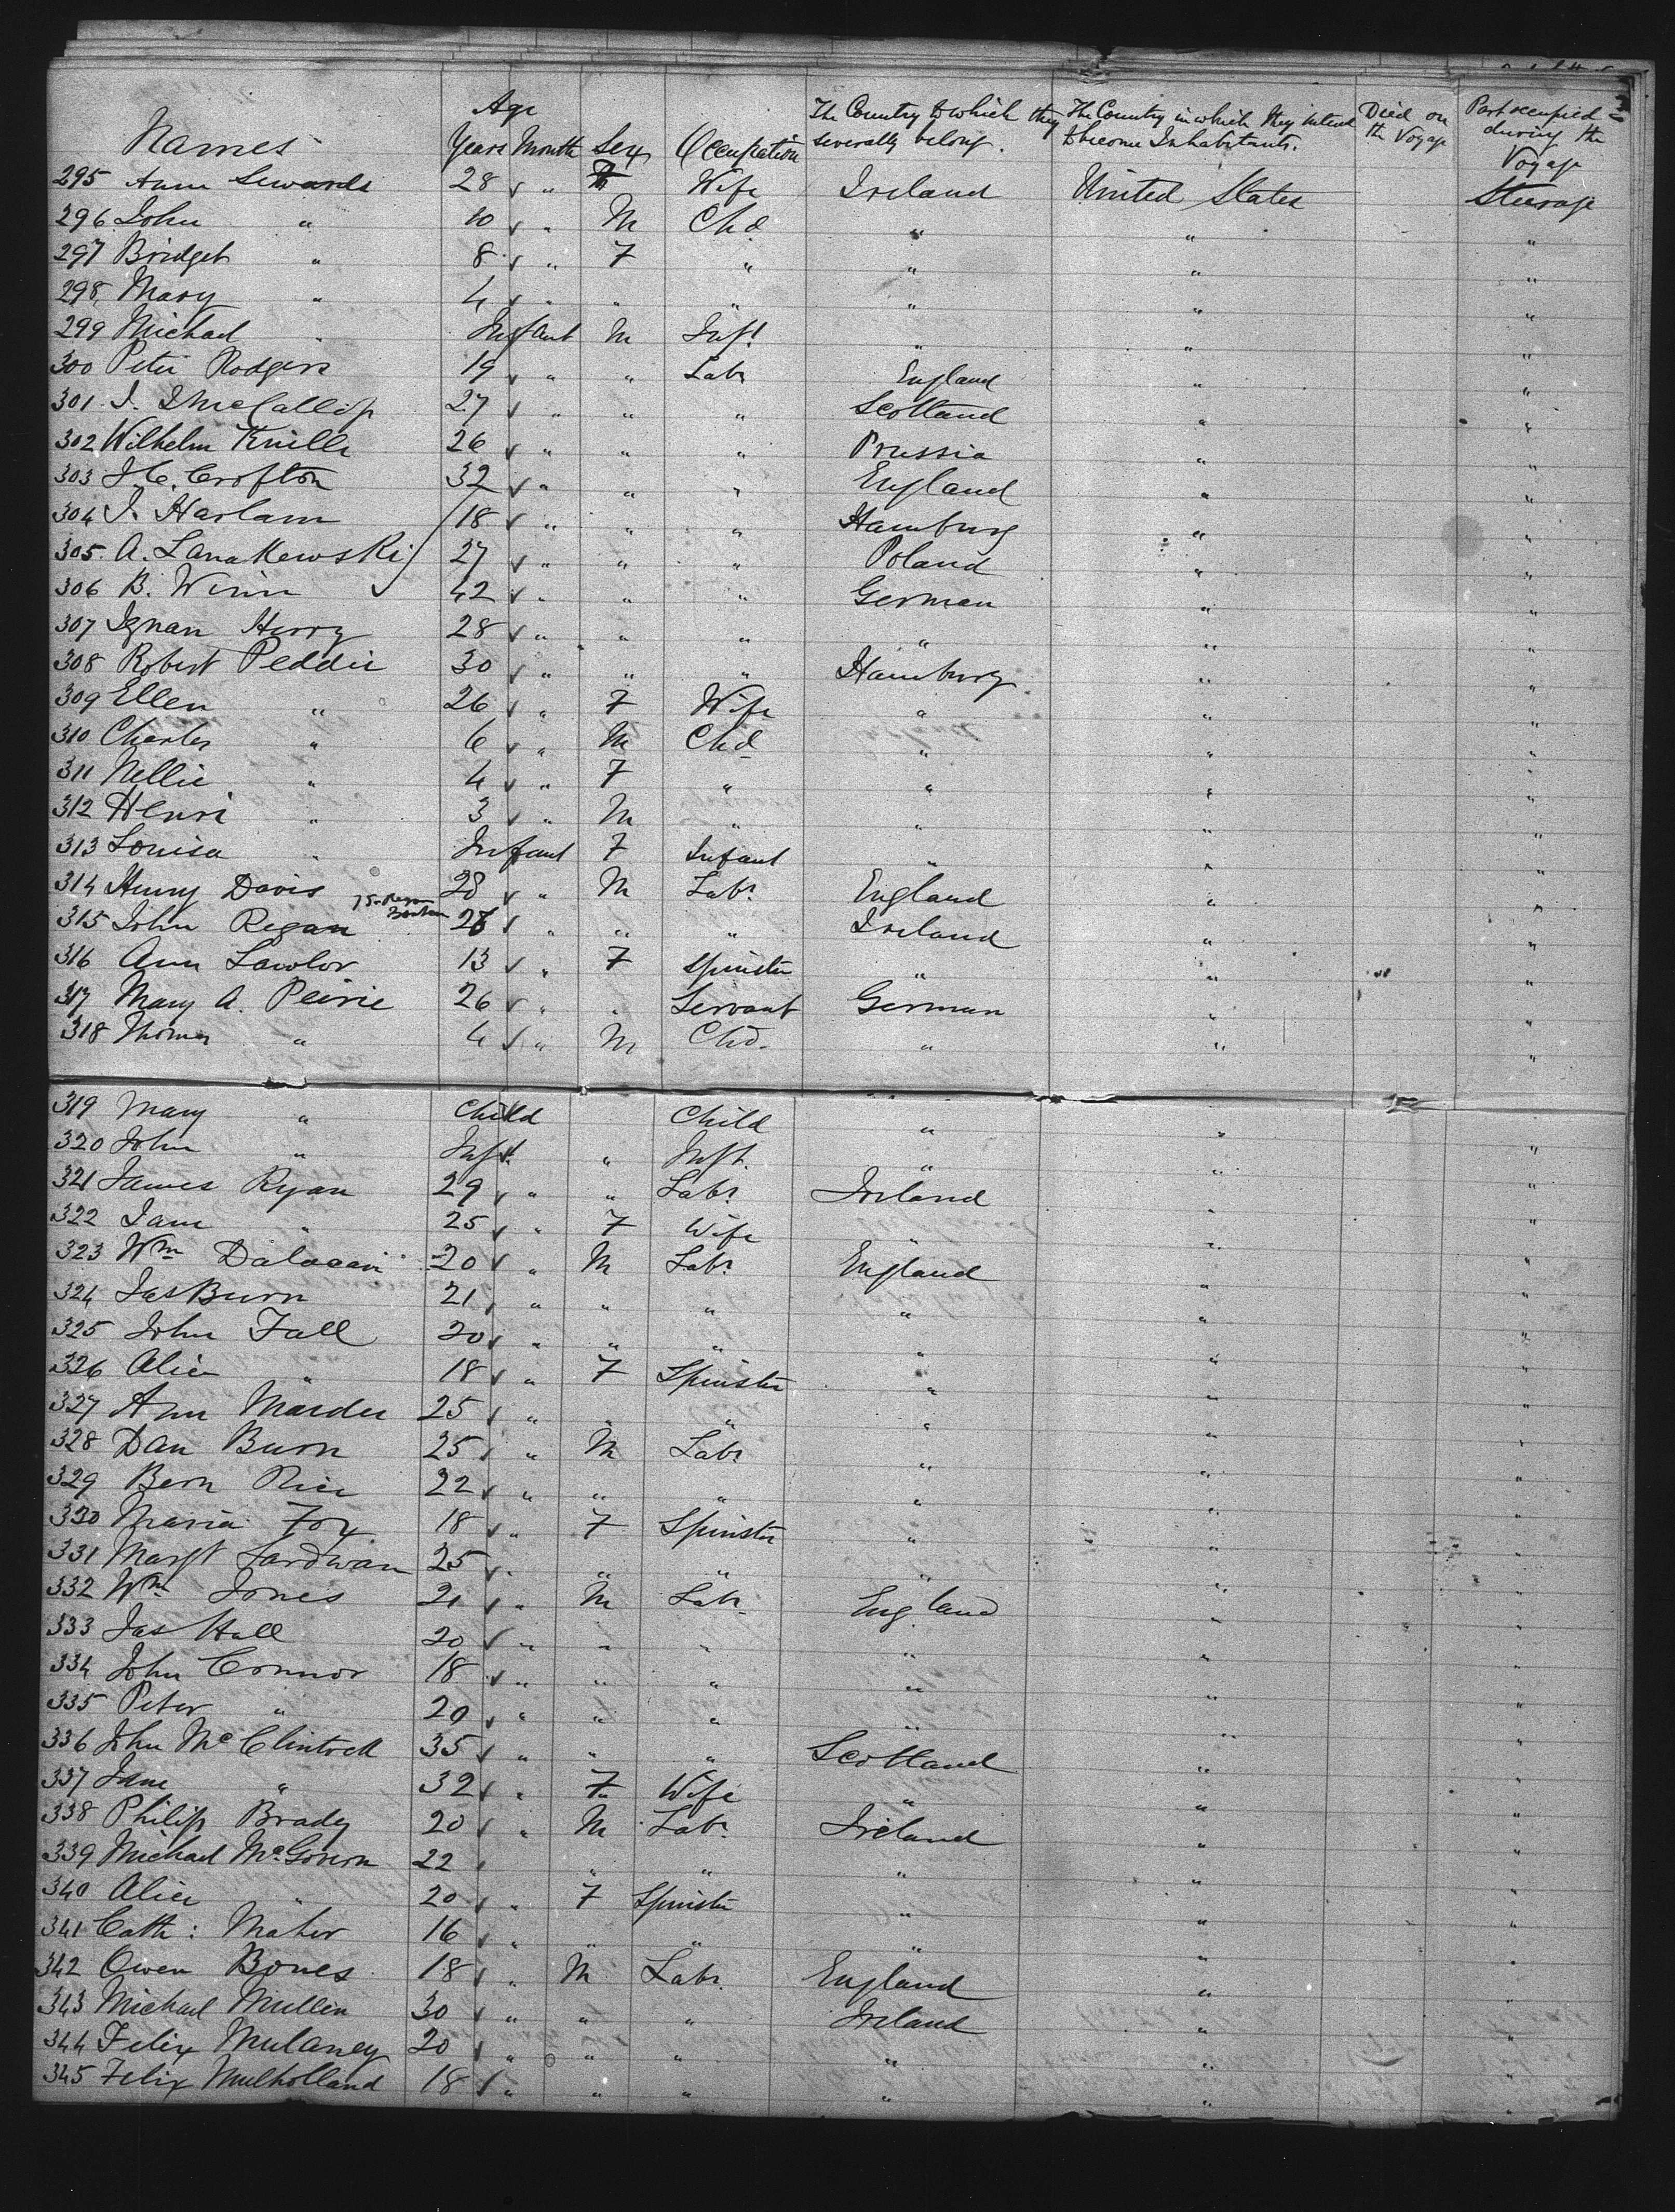 Names Age Years Month Sex Occupation The Country to which they severally belong. The Country in which they intend to become Inhabitants. Died on the Voyage Part occupied during the Voyage
295 Ann Sewards 28 " F Wife Ireland United States Steerage
296 John " 10 " M Chd " " "
297 Bridget " 8 " F " " " "
298 Mary " 4 " " " " " "
299 Michael " Infant M Inft " " "
300 Peter Rodgers 19 " " Labr England " "
301 J. 27 " " " Scotland " "
302 Wilhelm 26 " " " Prussia " "
303 J. C. Crofton 32 " " " England " "
304 J. Harlam 18 " " " Hamburg " "
305 A. 27 " " " Poland " "
306 B. Winn 42 " " " German " "
307 Ignan Herry 28 " " " " " "
308 Robert Peddie 30 " " " Hamburg " "
309 Ellen " 26 " F Wife " " "
310 Charles " 6 " M Chd " " "
311 Nellie " 4 " F " " " "
312 Henri " 3 " M " " " "
313 Louisa " Infant F Infant " " "
314 Henry Davis 28 " M Labr England " "
315 John Regan " " " Ireland " "
316 Ann Lawlor 13 " F Spinster " " "
317 Mary A. Peirie 26 " " Servant German " "
318 Thomas " 4 " M Chd. " " "
319 Mary " Child Child " " "
320 John " Inft " Inft. " " "
321 James Ryan 29 " " Labr Ireland " "
322 Jane " 25 " F Wife " " "
323 Wm 20 " M Labr England " "
324 Jas Burn 21 " " " " " "
325 John Fall 20 " " " " " "
326 Alice " 18 " F Spinster " " "
327 Ann Marder 25 " " " " " "
328 Dan Burn 25 " M Labr " " "
329 Bern Rice 22 " " " " " "
330 Maria Fox 18 " F Spinster " " "
331 Margt 25 " " " " " "
332 Wm Jones 21 " M Labr England " "
333 Jas Hall 20 " " " " " "
334 John Connor 18 " " " " " "
335 Peter " 20 " " " " " "
336 John McClintock 35 " " " Scotland " "
337 Jane " 32 " F Wife " " "
338 Philip Brady 20 " M Labr Ireland " "
339 Michael McGovern 22 " " " " "
340 Alice " 20 " F Spinster " " "
341 Cath: Maher 16 " " " " " "
342 Owen Bones 18 " M Labr England " "
343 Michael Mullen 30 " " " Ireland " "
344 Felix Mulaney 20 " " " " " "
345 Felix Mulholland 18 " " " " " "